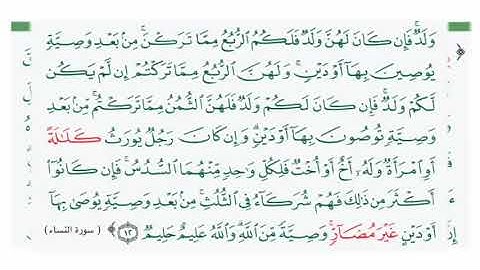 وَلَدٌ ۚ فَإِن كَانَ لَهُنَّ وَلَدٌ فَلَكُمُ ٱلرُّبُعُ مِمَّا تَرَكْنَ ۚ مِنۢ بَعْدِ وَصِيَّةٍ
يُوصِينَ بِهَآ أَوْ دَيْنٍ ۚ وَلَهُنَّ ٱلرُّبُعُ مِمَّا تَرَكْتُمْ إِن لَّمْ يَكُن
لَّكُمْ وَلَدٌ ۚ فَإِن كَانَ لَكُمْ وَلَدٌ فَلَهُنَّ ٱلثُّمُنُ مِمَّا تَرَكْتُم ۚ مِّنۢ بَعْدِ
وَصِيَّةٍ تُوصُونَ بِهَآ أَوْ دَيْنٍ ۗ وَإِن كَانَ رَجُلٌ يُورَثُ كَلَٰلَةً
أَوِ ٱمْرَأَةٌ وَلَهُۥٓ أَخٌ أَوْ أُخْتٌ فَلِكُلِّ وَٰحِدٍ مِّنْهُمَا ٱلسُّدُسُ ۚ فَإِن كَانُوٓا۟
أَكْثَرَ مِن ذَٰلِكَ فَهُمْ شُرَكَآءُ فِى ٱلثُّلُثِ ۚ مِنۢ بَعْدِ وَصِيَّةٍ يُوصَىٰ بِهَآ
أَوْ دَيْنٍ غَيْرَ مُضَآرٍّ ۚ وَصِيَّةً مِّنَ ٱللَّهِ ۗ وَٱللَّهُ عَلِيمٌ حَلِيمٌ ﴿١٢﴾ (سورة النساء)